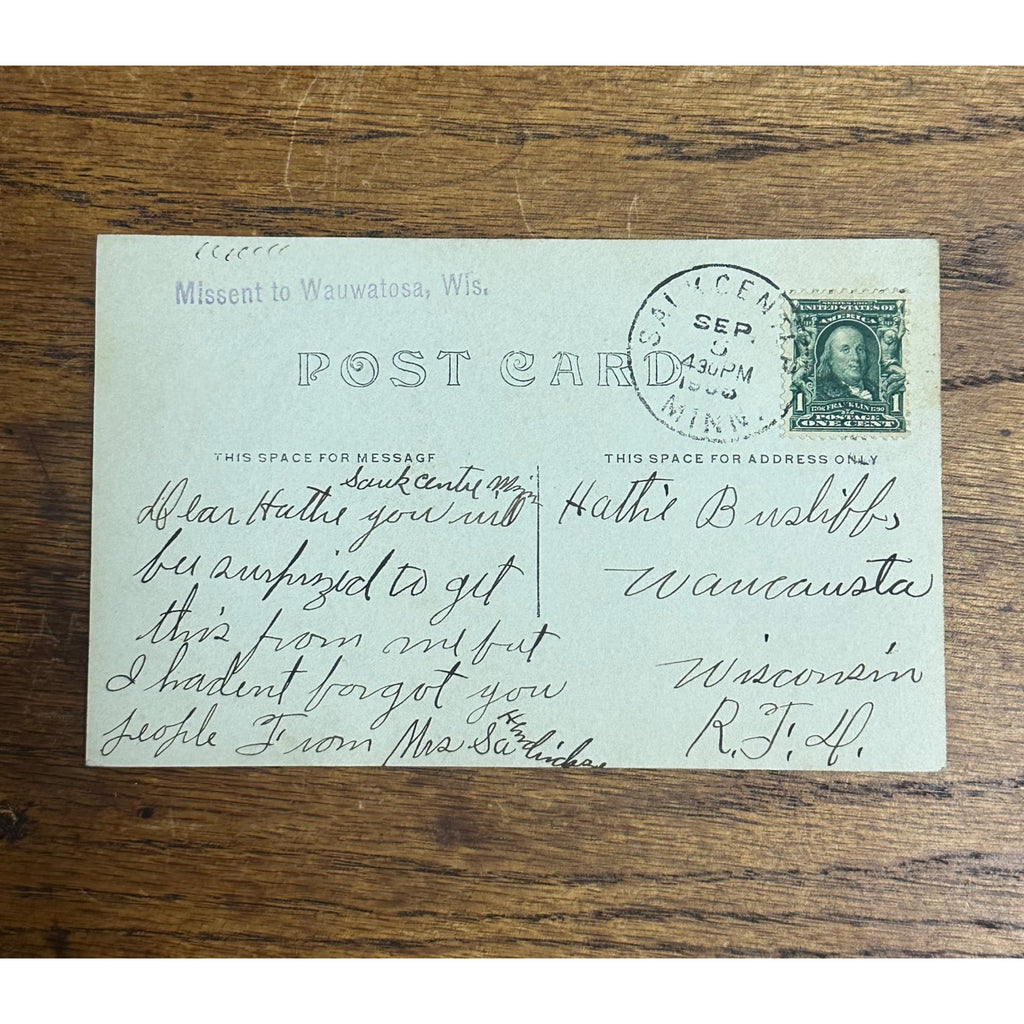 Missent to Wauwatosa, Wis.
SAUK CENTRE
SEP
430PM
1908
MINN.
SERIES 1902
UNITED STATES OF
AMERICA
1
1706 FRANKLIN 1790
1
POSTAGE
ONE CENT
POST CARD
THIS SPACE FOR MESSAGE
THIS SPACE FOR ADDRESS ONLY
Sauk Centre Min
Dear Hattie you will
bee surprized to get
this from me but
I hadent forgot you
people From Mrs
Hattie
Waucausta
Wisconsin
R.F.D.